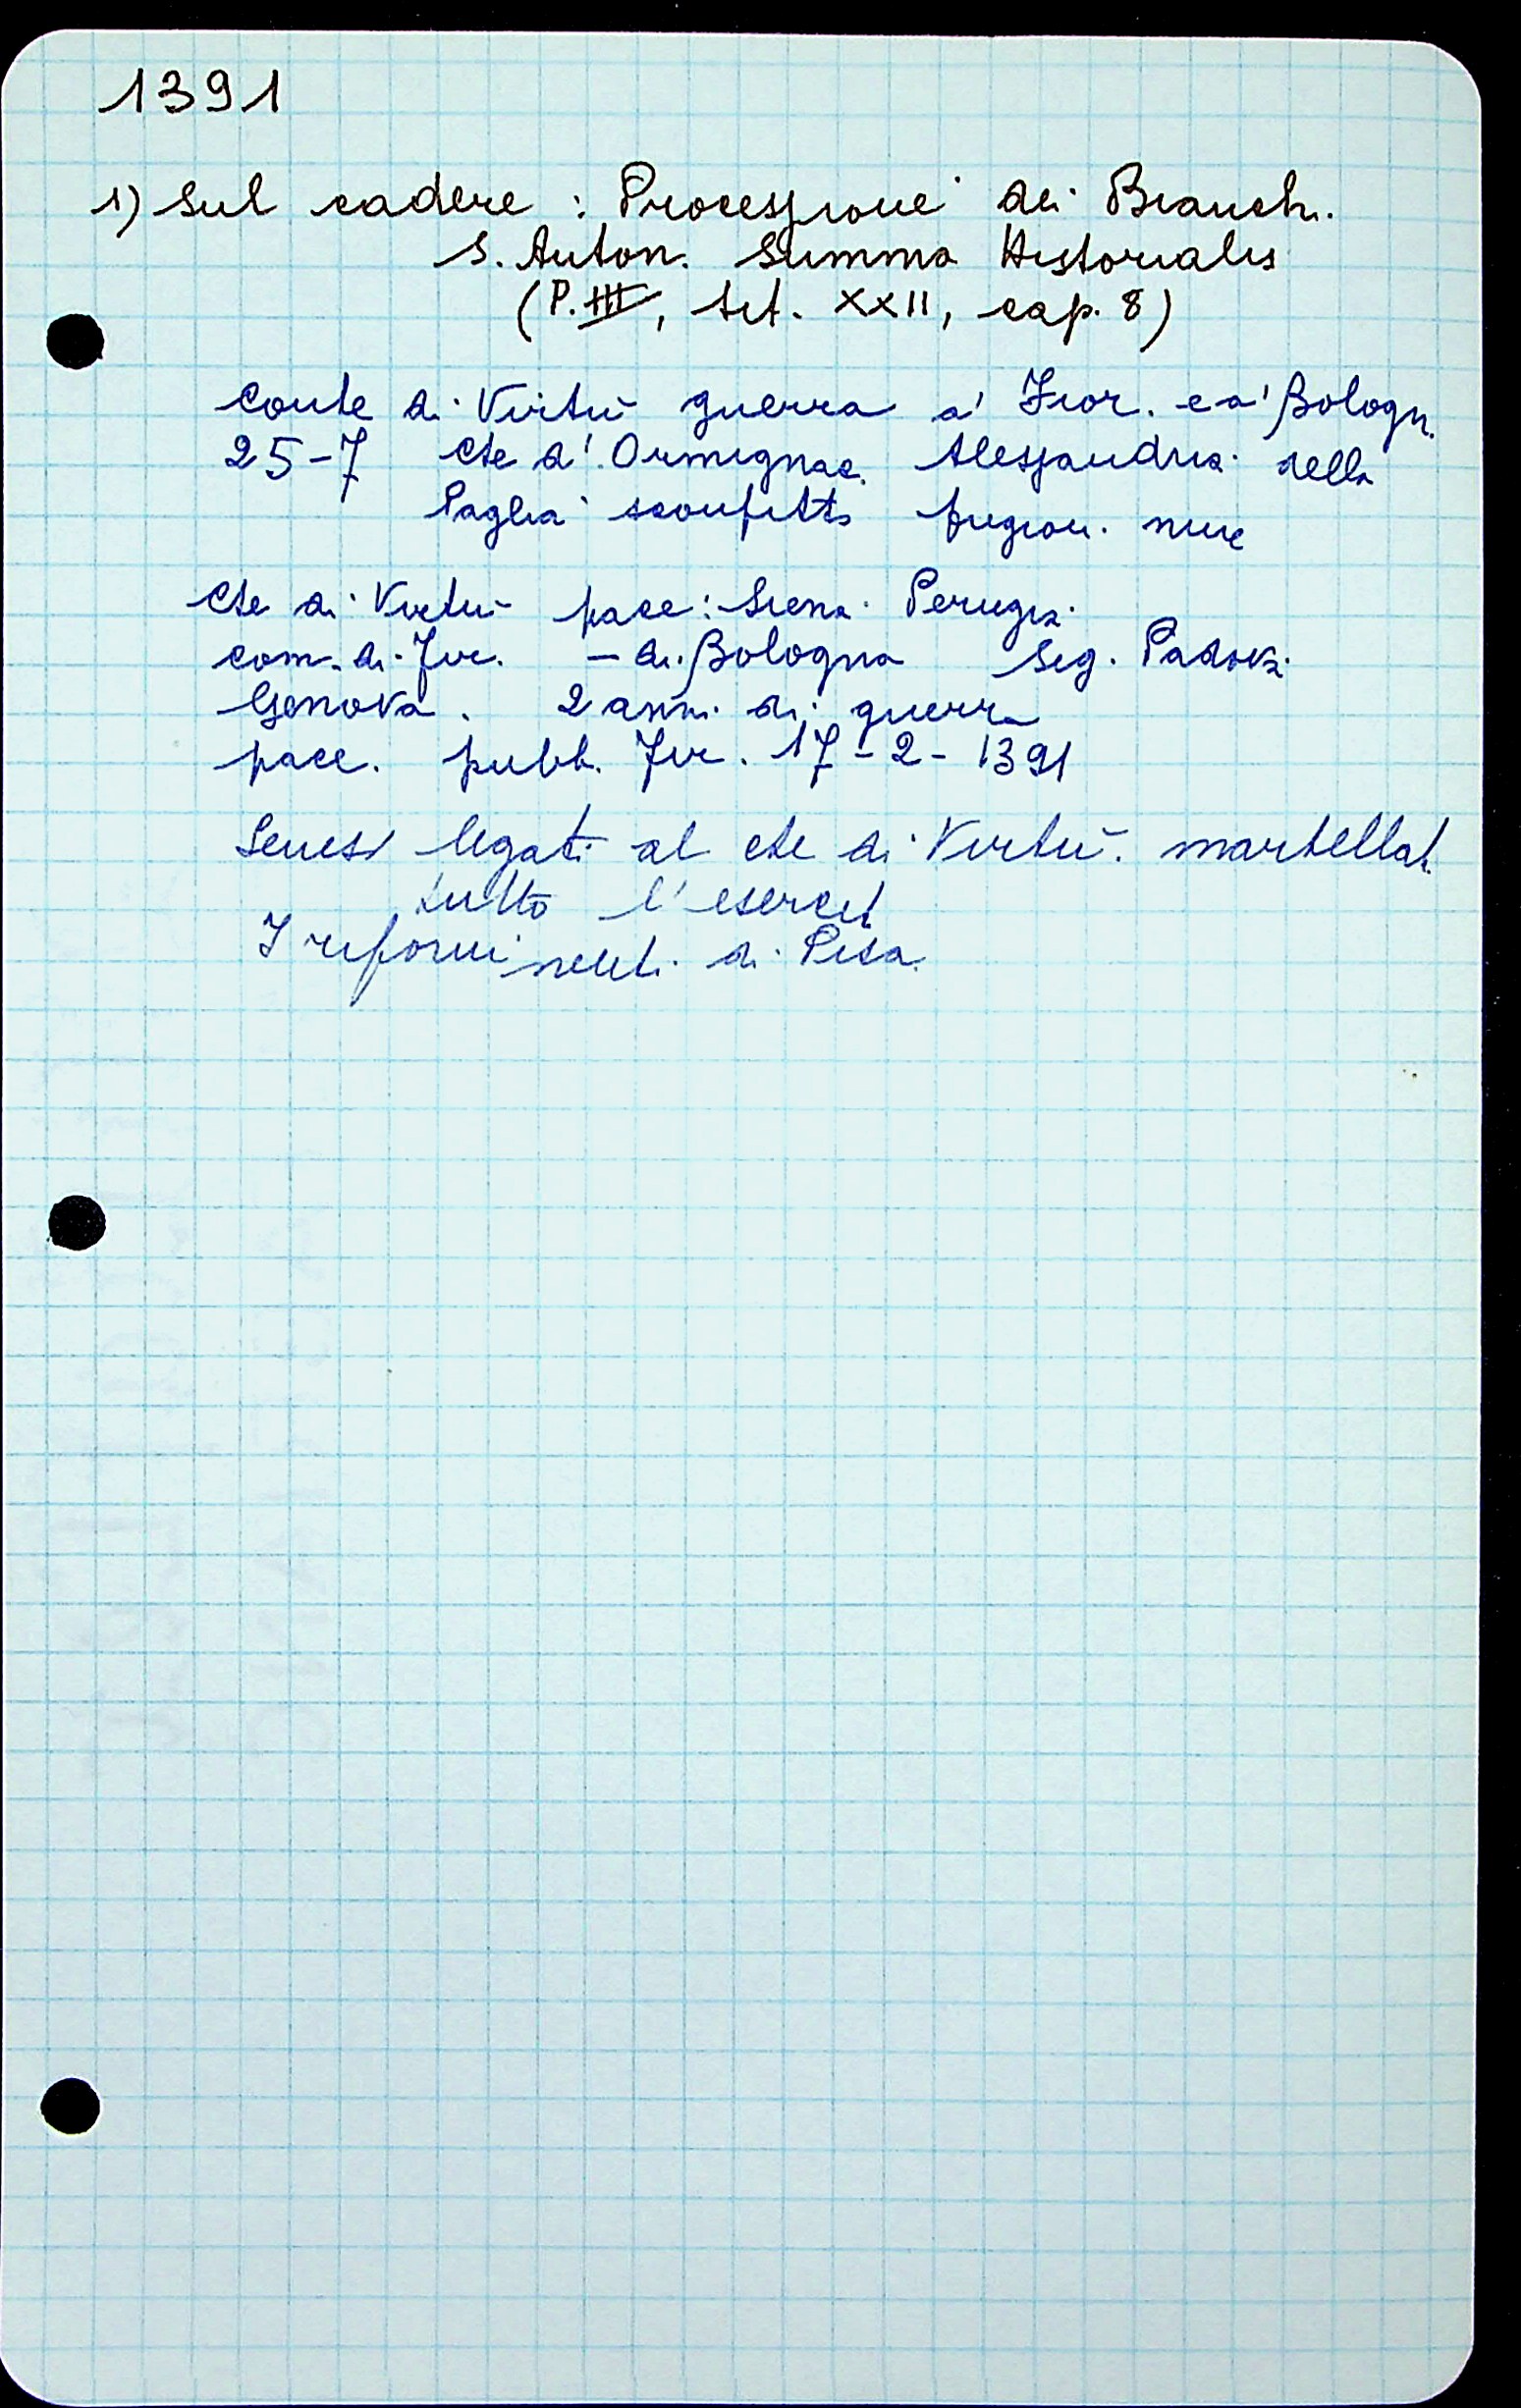 1391
1) Sul cadere : Processione dei Bianchi.
S. Anton. Summa Historialis
(P. III, tit. XXII, cap. 8)
Conte di Virtù guerra a' Fior. e a' Bologn.
25-7 Cte d'Ormignac. Alessandria della
Paglia sconfitto prigion.
Cte di Virtù pace: Siena Perugia
com. di Fir. - di Bologna Sig. Padova
Genova. 2 anni di guerra
pace. pubb. Fir. 17-2-1391
Senesi legati al cte di Virtù. martellati
tutto l'esercit
I rifornimenti di Pisa.